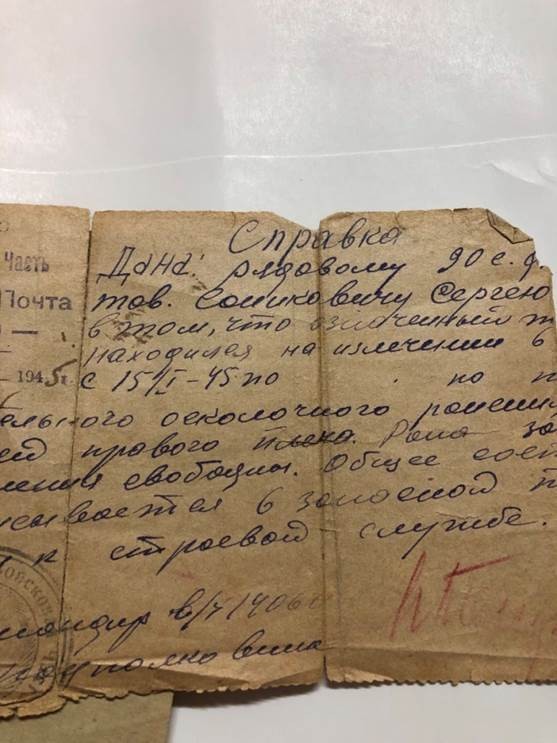 Часть
Почта
1945г.
Справка
Дана: рядовому 90 с.
тов. Сергею
в том, что означенный т
находился на излечении в
с 15/I-45 по . по п
ельного осколочного ранения
ей правого плеча. Рана за
ения свободны. Общее сост
сывается в запасной п
к строевой службе.
мандир в/ч
полковник